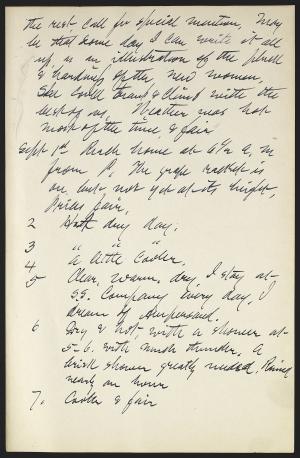 the rest call for special mention. May
be that some day I can write it all
up as an illustration of the pluck
& hardiness of the new women.
She could tramp & climb with the
best of us. Weather was hot
most of the time, & fair
Sept 1st Reach home at 6 a. m
from P. The grape racket is
on but not yet at its height,
fair,
2 Hot dry day;
3 " " "
4 " A little cooler,
5 Clear, warm, dry, I stay at
S.S. Company every day, I
dream of Ampersand.
6 Dry & hot, with a shower at
5-6. with much thunder. A
brisk shower greatly needed, Rained
nearly an hour
7, Cooler & fair